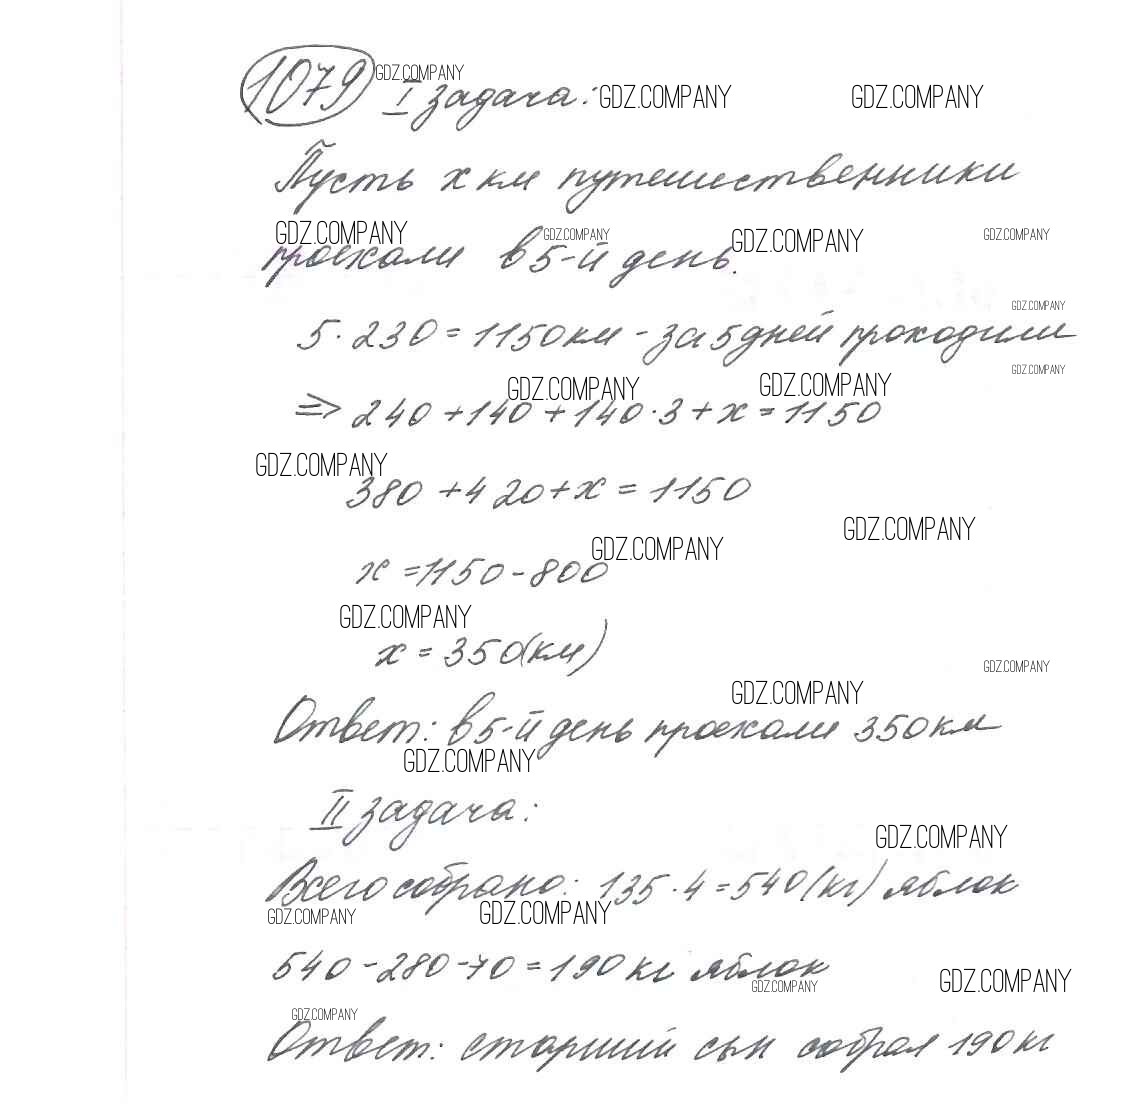 1079 GDZ.COMPANY
I задача: GDZ.COMPANY GDZ.COMPANY
Пусть x км путешественники
GDZ.COMPANY GDZ.COMPANY GDZ.COMPANY GDZ.COMPANY
проехали в 5-й день.
GDZ.COMPANY
5·230=1150км - за 5 дней проходили
GDZ.COMPANY
GDZ.COMPANY GDZ.COMPANY
=> 240+140+140·3+x=1150
GDZ.COMPANY
380+420+x=1150
GDZ.COMPANY
GDZ.COMPANY
x=1150-800
GDZ.COMPANY
x=350(км)
GDZ.COMPANY
GDZ.COMPANY
Ответ: в 5-й день проехали 350км
GDZ.COMPANY
II задача:
GDZ.COMPANY
Всего собрано: 135·4=540(кг) яблок
GDZ.COMPANY GDZ.COMPANY
540-280-70=190 кг яблок
GDZ.COMPANY GDZ.COMPANY
GDZ.COMPANY
Ответ: старший сын собрал 190кг